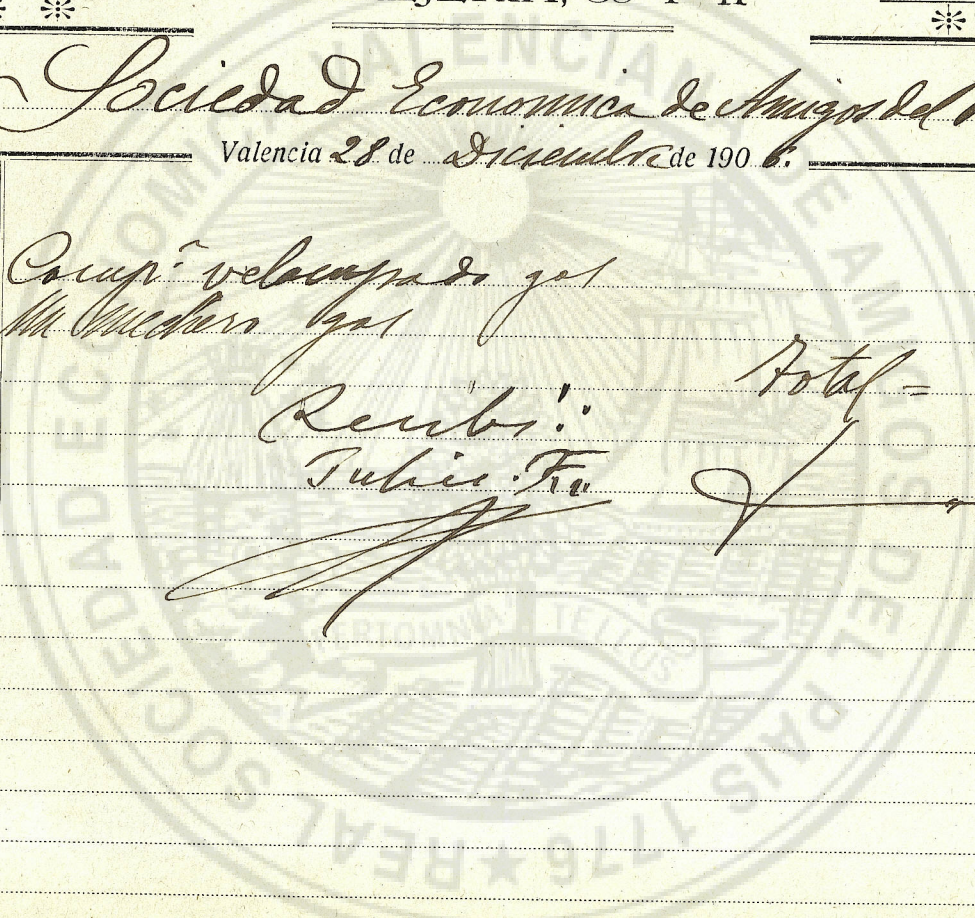 Sociedad Economica de Amigos del
Valencia 28 de Diciembre de 1906.
Comp.ⁿ gas
un mechero gas
Total =
Recibí:
Julio
REAL SOCIEDAD ECONOMICA VALENCIANA DE AMIGOS DEL PAIS 1776
TELLUS